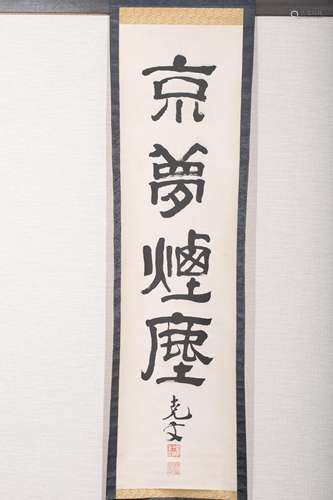 京夢煙塵
尭文